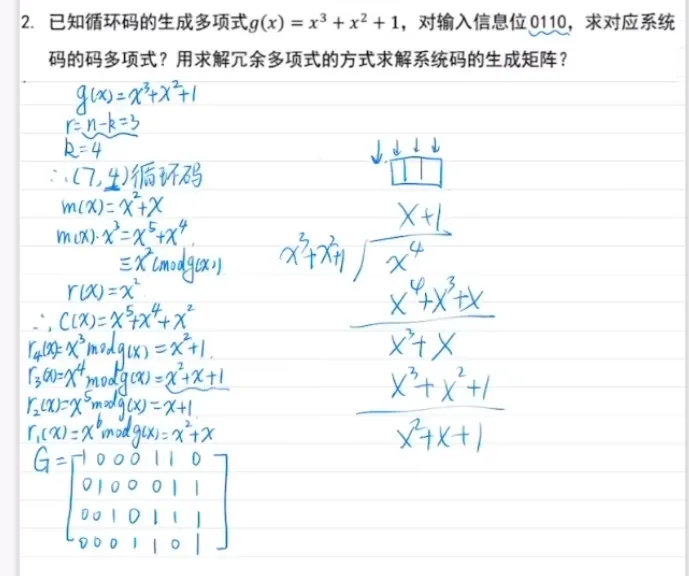 2. 已知循环码的生成多项式g(x) = x³ + x² + 1，对输入信息位0110，求对应系统
码的码多项式？用求解冗余多项式的方式求解系统码的生成矩阵？
g(x)=x³+x²+1
r=n-k=3
k=4
∴(7,4)循环码
m(x)=x²+x
m(x)·x³=x⁵+x⁴
≡x²(mod g(x))
r(x)=x²
∴C(x)=x⁵+x⁴+x²
r₄(x)=x³mod g(x)=x²+1.
r₃(x)=x⁴mod g(x)=x²+x+1
r₂(x)=x⁵mod g(x)=x+1
r₁(x)=x⁶mod g(x)=x²+x
G=[1 0 0 0 1 1 0
0 1 0 0 0 1 1
0 0 1 0 1 1 1
0 0 0 1 1 0 1]
x+1
x³+x²+1 ) x⁴
x⁴+x³+x
x³+x
x³+x²+1
x²+x+1